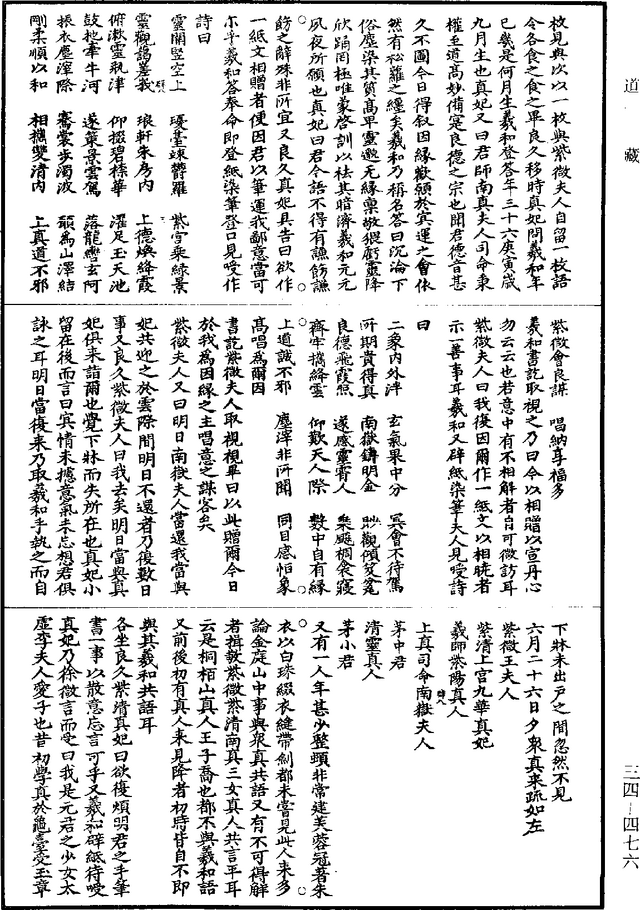 道藏
枚見與次以一枚與紫微夫人自留一枚語
令各食之食之畢良久移時真妃問羲和年
已幾是何月生羲和登答年三十六庚寅歲
九月生也真妃又曰君師南真夫人司命秉
權至道高妙備寔良德之宗也聞君德音甚
久不圖今日得叙因緣歡願於冥運之會依
然有松蘿之纏矣羲和乃稱名答曰沉淪下
俗塵染其質高卑靈邈无緣稟敬猥虧靈降
欣踊罔極唯蒙啓訓以袪其暗濟羲和元元
夙夜所願也真妃曰君今語不得有謙飭謙
飭之辭殊非所宜又良久真妃見告曰欲作
一紙文相贈者便因君以筆運我鄙意當可
尒乎羲和答奉命即登紙染筆登口見受作
詩曰
雲闕竪空上 瓊臺竦欝羅 紫宮乘綠景
靈觀藹嵯峩 琅軒朱房內 上德煥絳霞
俯漱靈瓶津 仰掇碧柰華 濯足玉天池
鼓枻牽牛河 遂策景雲駕 落龍轡玄阿
振衣塵滓際 褰裳步濁波 願為山澤結
剛柔順以和 相攜雙清內 上真道不邪
紫微會良謀 唱納享福多
羲和書訖取視之乃曰今以相贈以宣丹心
勿云云也若意中有不相解者自可微訪耳
紫微夫人曰我復因爾作一紙文以相曉者
示一善事耳羲和又礕紙染筆夫人見受詩
曰
二象內外泮 玄氣果中分 冥會不待駕
所期貴得真 南嶽鑄明金 眇觀傾笈笭
良德飛霞照 遂感靈霄人 乘飈儔衾寢
齊牢攜絳雲 仰歎天人際 數中自有緣
上道誡不邪 塵滓非所聞 同目感恒象
高唱為爾因
書訖紫微夫人取視視畢曰以此贈爾今日
於我為因緣之主唱意之謀客矣
紫微夫人又曰明日南嶽夫人當還我當與
妃共迎之於雲際間明日不還者乃復數日
事又良久紫微夫人曰我去矣明日當與真
妃俱來詣爾也覺下牀而失所在也真妃小
留在後而言曰冥情未攄意氣未忘想君俱
詠之耳明日當復來乃取羲和手執之而自
下牀未出戶之間忽然不見
六月二十六日夕衆真來疏如左
紫微王夫人
紫清上宮九華真妃
羲師紫陽真人
上真司命南嶽夫人
茅中君
清靈真人
茅小君
又有一人年甚少整頓非常建芙蓉冠著朱
衣以白珠綴衣縫帶劍都未嘗見此人來多
論金庭山中事與衆真共語又有不可得解
者揖敬紫微紫清南真三女真人共言平耳
云是桐栢山真人王子喬也都不與羲和語
又前後初有真人來見降者初時皆自不即
與其羲和共語耳
各坐良久紫清真妃曰欲復煩明君之手筆
書一事以散意忘言可乎又羲和礕紙待受
真妃乃徐微言而受曰我是元君之少女太
虛李夫人愛子也昔初學真於龜臺受玉章
三四—四七六